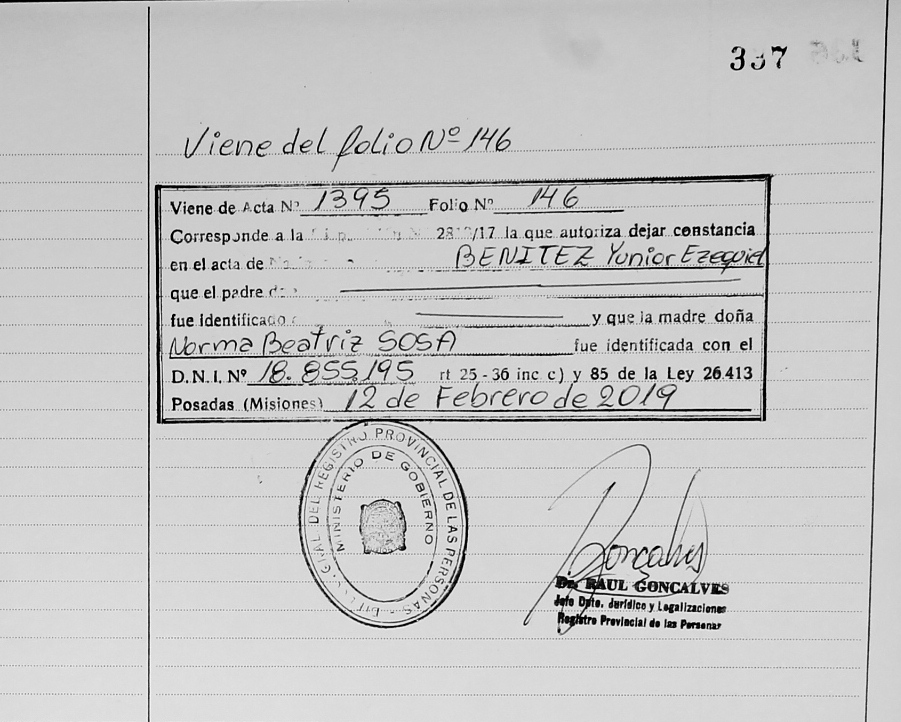 337
Viene del folio Nº 146
Viene de Acta Nº 1395 Folio Nº 146
Corresponde a la /17 la que autoriza dejar constancia
en el acta de BENITEZ Yunior Ezequiel
que el padre
fue identificado y que la madre doña
Norma Beatriz SOSA fue identificada con el
D.N.I. Nº 18.855.195 rt 25 - 36 inc c) y 85 de la Ley 26.413
Posadas (Misiones) 12 de Febrero de 2019
GRAL DEL REGISTRO PROVINCIAL DE LAS PERSONAS
MINISTERIO DE GOBIERNO
Goncalves
Dr. RAUL GONCALVES
Jefe Dpto. Jurídico y Legalizaciones
Registro Provincial de las Personas